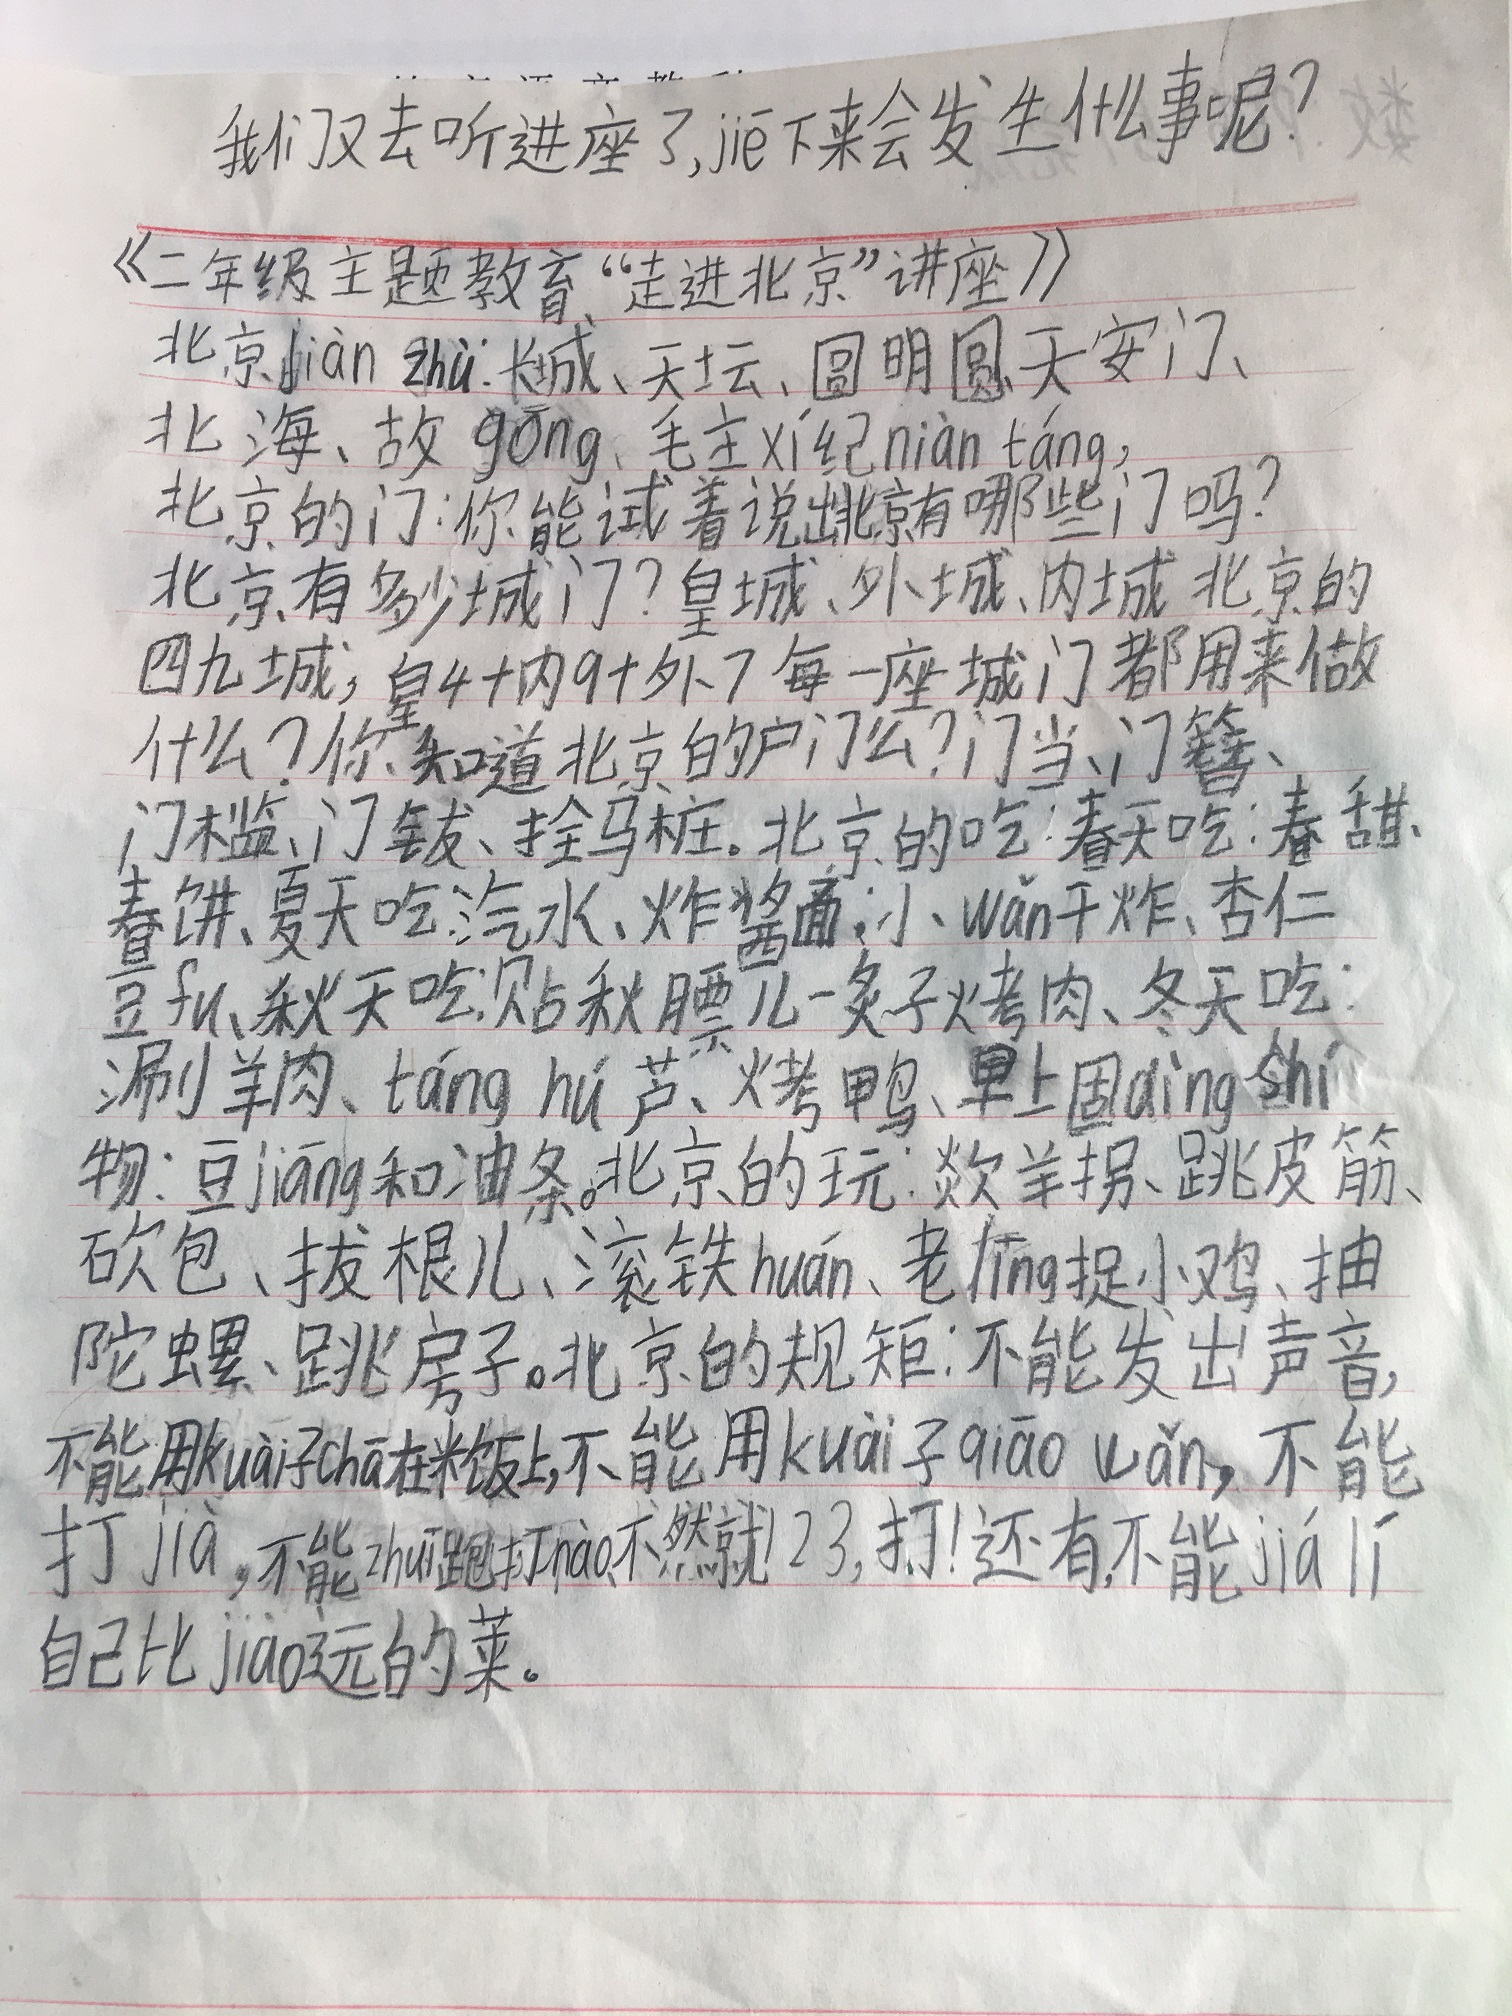 我们又去听进座了,jiē下来会发生什么事呢?
《二年级主题教育、“走进北京”讲座》
北京jiàn zhù:长城、天坛、圆明圆、天安门、
北海、故gōng、毛主xí纪niàn táng,
北京的门:你能试着说出北京有哪些门吗?
北京有多少城门?皇城、外城、内城北京的
四九城,皇4+内9+外7每一座城门都用来做
什么?你知道北京的户门么?门当、门簪、
门槛、门钹、拴马桩。北京的吃:春天吃:春甜、
春饼、夏天吃:汽水、炸酱面;小wǎn干炸、杏仁
豆fu、秋天吃:贴秋膘儿-炙子烤肉、冬天吃:
涮羊肉、táng hú芦、烤鸭、早上固dìng shí
物:豆jiāng和油条。北京的玩:欻羊拐、跳皮筋、
砍包、拔根儿、滚铁huán、老yīng捉小鸡、抽
陀螺、跳房子。北京的规矩:不能发出声音,
不能用kuài子chā在米饭上,不能用kuài子qiāo wǎn,不能
打jià,不能zhuī跑打nào,不然就123,打!还有,不能jiá lí
自己比jiào远的菜。